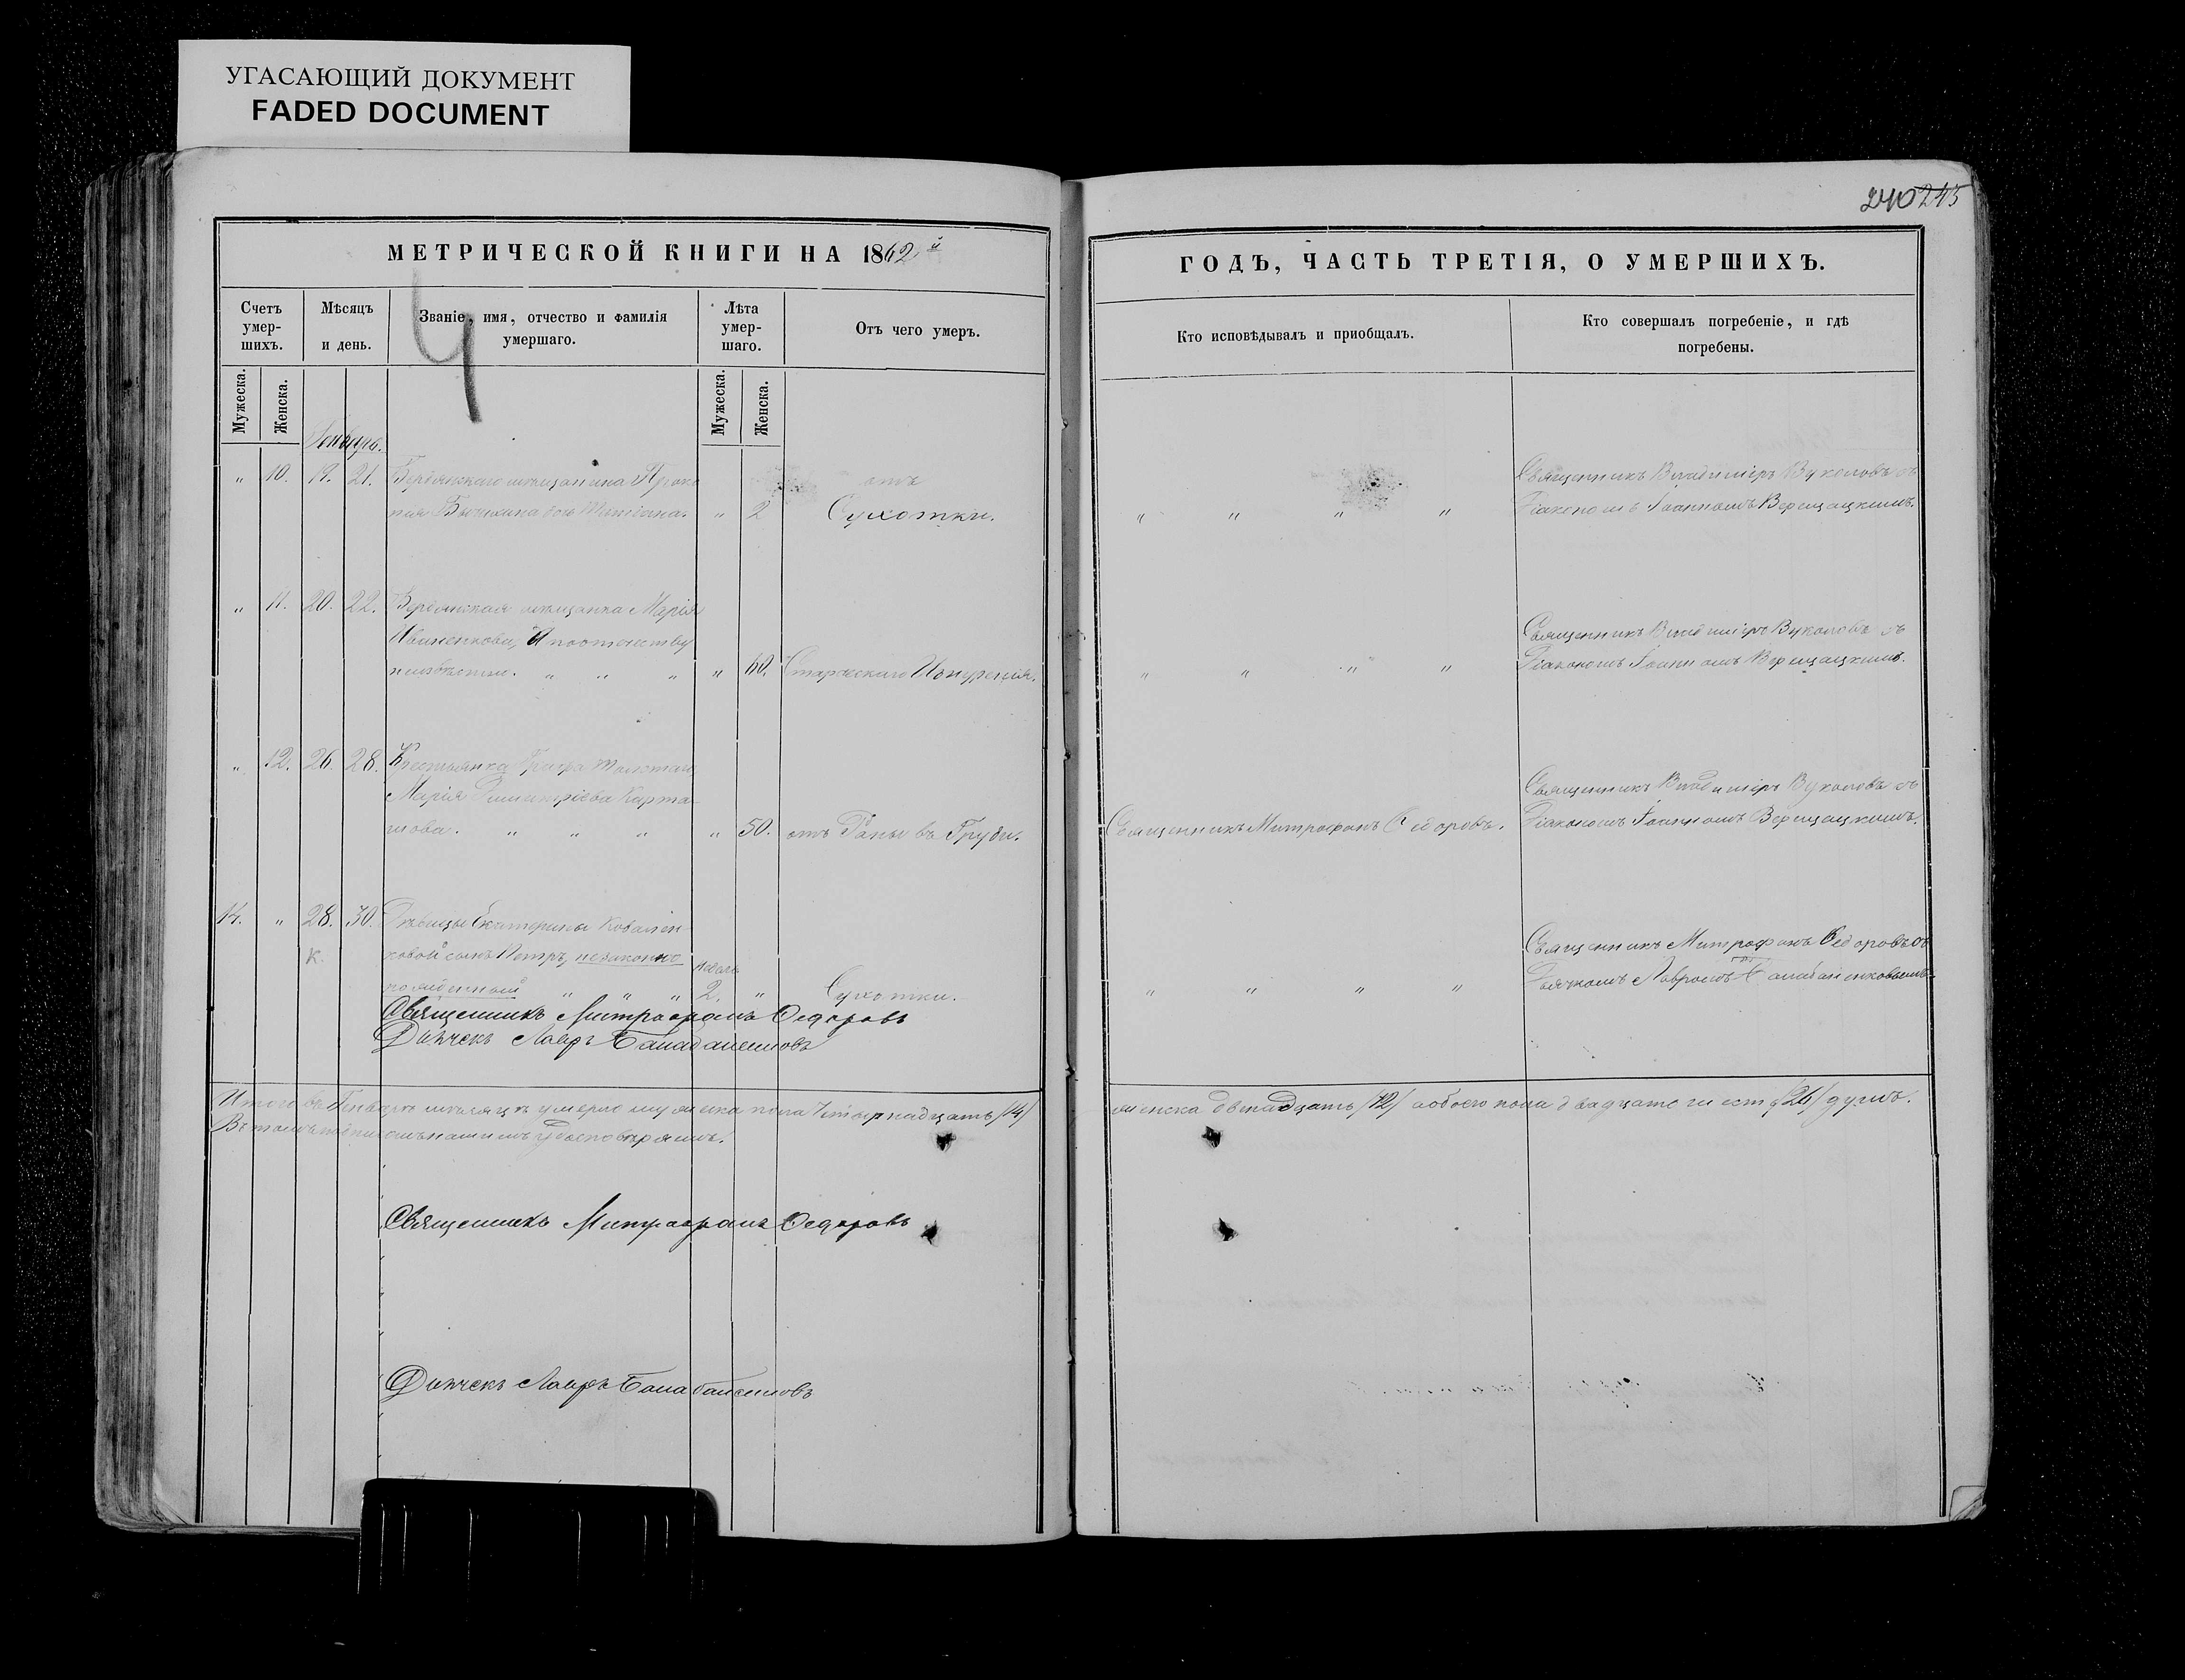 УГАСАЮЩИЙ ДОКУМЕНТ
FADED DOCUMENT
240 245
МЕТРИЧЕСКОЙ КНИГИ НА 1862 й
ГОДЪ, ЧАСТЬ ТРЕТІЯ, О УМЕРШИХЪ.
Счетъ умер-шихъ.
Мѣсяцъ и день.
Званіе, имя, отчество и фамилія умершаго.
Лѣта умер-шаго.
Отъ чего умеръ.
Кто исповѣдывалъ и приобщалъ.
Кто совершалъ погребеніе, и гдѣ погребены.
Мужеска.
Женска.
Мужеска.
Женска.
Ч
Генварь.
" 10. 19. 21. Бердянскаго мѣщанина Проко
отъ
Священникъ Владиміръ Вуколовъ съ
пія дочь " 2 Сухотки.
" " " "
Діакономъ Іоанномъ Верещацкимъ.
" 11. 20. 22. Бердянская мѣщанка Марія
Иваненкова, А поотечеству
Священникъ Владиміръ Вуколовъ съ
неизвѣстно. " " " " 60. Старческаго Изнуренія.
" " " "
Діакономъ Іоанномъ Верещацкимъ.
" 12. 26. 28. Крестьянка Графа Толстаго
Марія Димитріева Карта-
Священникъ Владиміръ Вуколовъ съ
шова. " " " " 50. отъ Раны въ Груди.
Священникъ Митрофанъ Ѳедоровъ.
Діакономъ Іоанномъ Верещацкимъ.
14. " 28. 30. Дѣвицы Екатерины Ковален-
К. ковой сынъ Петръ, незаконно
Священникъ Митрофанъ Ѳедоровъ съ
рожденный " " " недѣль 2. " Сухотки.
" " " "
Дьячкомъ Лавромъ
Священникъ Митрофанъ Ѳедоровъ
Дьячекъ Лавръ
Итого въ Генварѣ мѣсяцѣ умерло мужеска пола Четырнадцать /14/
женска двѣнадцать /12/ а обоего пола двадцать шесть /26/ душъ.
Въ томъ подписомъ нашимъ удостовѣряемъ.
Священникъ Митрофанъ Ѳедоровъ
Дьячекъ Лавръ